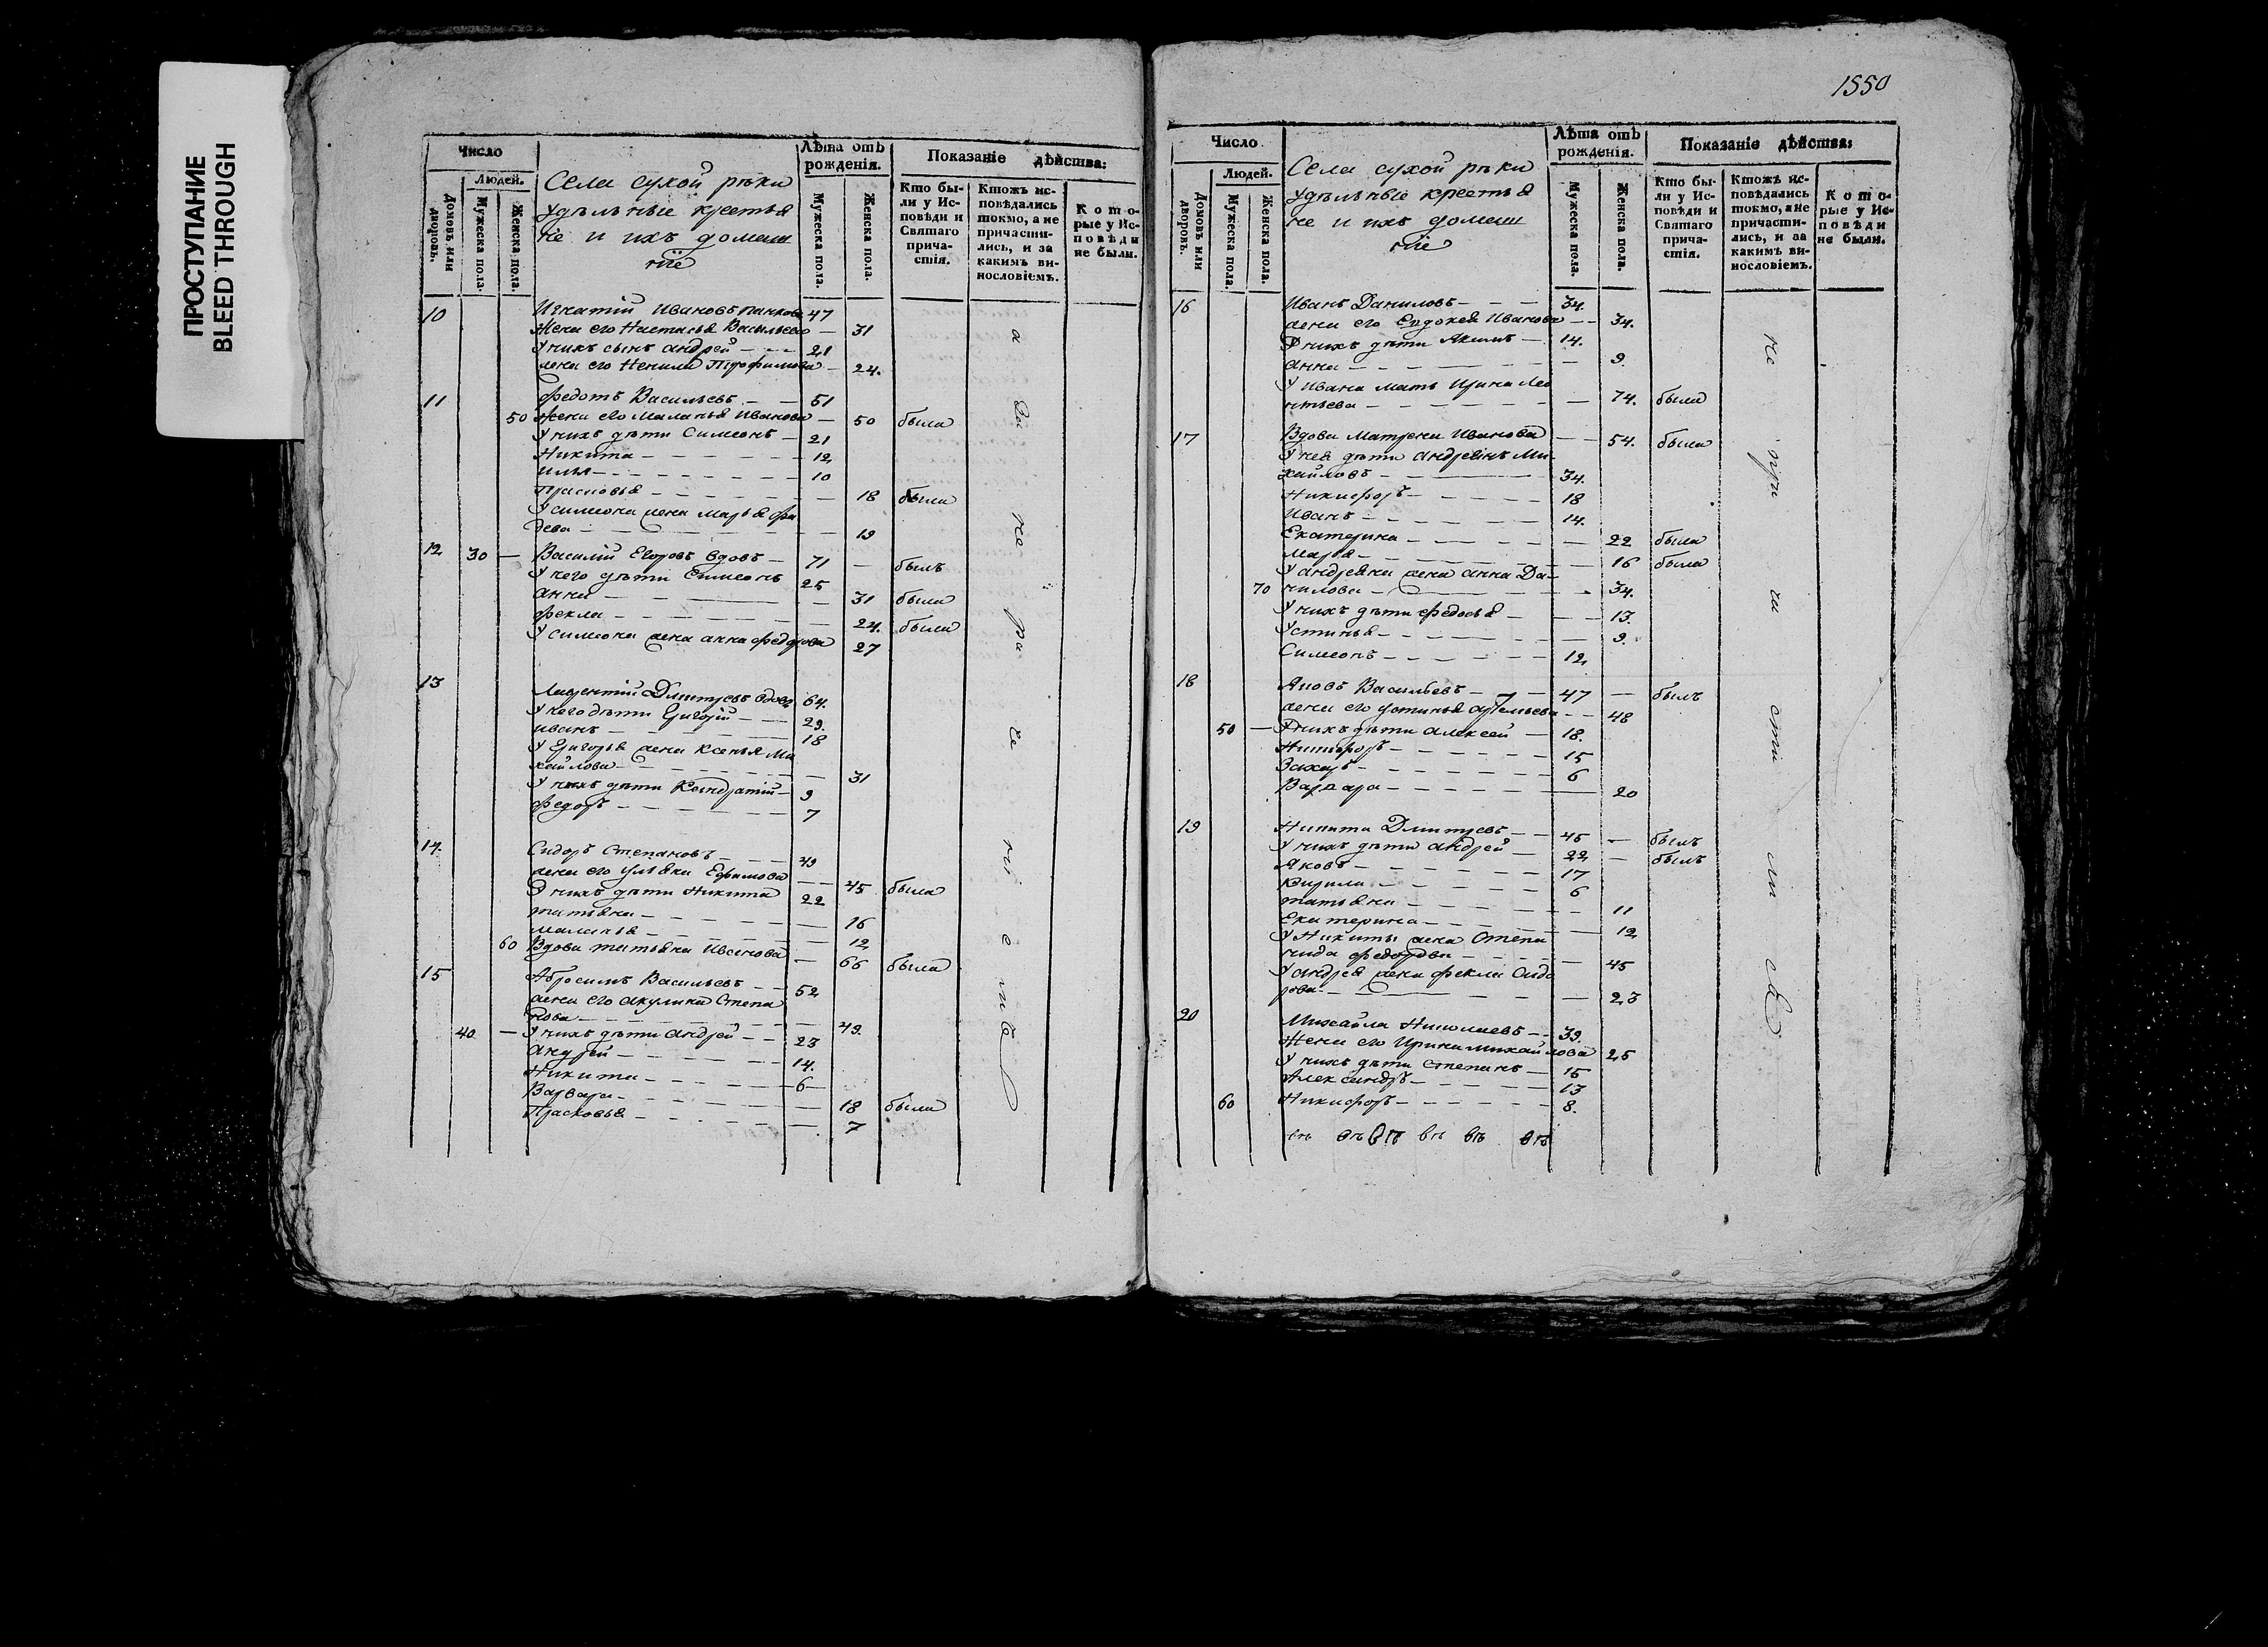 ПРОСТУПАНИЕ
BLEED THROUGH
Число
Людей.
Домовъ или дворовъ.
Мужеска пола.
Женска пола.
Села сухой рѣки
удѣльные крестья
не и ихъ домаш
ніе
Лѣта отъ рожденія.
Мужеска пола.
Женска пола.
Показаніе дѣйства:
Кто бы-
ли у Ис-
повѣди и
Святаго
прича-
стія.
Ктожъ ис-
повѣдались
токмо, а не
причасти-
лись, и за
какимъ ви-
нословіемъ.
Кото-
рые у Ис-
повѣди
не были.
10 Игнатій Ивановъ панковъ 47
Жена его Настасья Васильева — 31
У нихъ сынъ андрей — — — 21
жена его Ненила Трофимова — 24.
11 федотъ Васильевъ — — 51
50 жена его Маланья Иванова — 50 была
У нихъ дѣти Симеонъ — 21
Никита — — — — — — 12
илья — — — — — — 10
Прасковья — — — — — — 18 была
У симеона жена Марья фа
деева — — — — — 19
12 30 — Василій Егоровъ вдовъ — 71 — былъ
У него дѣти Симеонъ 25
анна — — — — — 31 была
фекла — — — — — — 24. была
У симеона жена анна федорова 27
13 Лаврентій Дмитревъ вдовъ 64.
У него дѣти Григорій — — 29.
иванъ — — — — — 18
У Григорья жена Ксенья Ми
хайлова — — — — — 31
У нихъ дѣти Кондратій — 9
федоръ — — — — — 7
14. Сидоръ Степановъ — — — 49
жена его Ульяна Ефимова — — 45 была
У нихъ дѣти Никита 22
татьяна — — — — — 16
маланья — — — — — 12
60 Вдова татьяна Иванова — 66 была
15 Абросимъ Васильевъ — — 52
жена его акулина Степа
нова — — — — — 49.
40 — У нихъ дѣти андрей — — 23
андрей — — — — — 14.
Никита — — — — — 6
Варвара — — — — — 18 была
Прасковья — — — — — 7
1550
Число
Людей.
Домовъ или дворовъ.
Мужеска пола.
Женска пола.
Села сухой рѣки
удѣльные крестья
не и ихъ домаш
ніе
Лѣта отъ рожденія.
Мужеска пола.
Женска пола.
Показаніе дѣйства:
Кто бы-
ли у Ис-
повѣди и
Святаго
прича-
стія.
Ктожъ ис-
повѣдались
токмо, а не
причасти-
лись, и за
какимъ ви-
нословіемъ.
Кото-
рые у Ис-
повѣди
не были.
16 Иванъ Даниловъ — — — 34.
жена его Евдокея Иванова — — 34.
У нихъ дѣти Акимъ — 14.
анна — — — — — 9.
У Ивана мать Ирина Лео
нтьева — — — — — 74. была
17 Вдова Матрена Иванова — — 54. была
У нея дѣти андреянъ Ми-
хайловъ — — — 34.
Никифоръ — — — — — 18
Иванъ — — — — — — 14.
Екатерина — — — — — 22 была
Марья — — — — — 16 была
У андреяна жена анна Да-
70 нилова — — — — 34.
У нихъ дѣти федосья — — — 13.
Устинья — — — — — 9.
Симеонъ — — — — — 12
18 Яковъ Васильевъ — — 47 — былъ
жена его устинья арт­емьева — — 48
50 — У нихъ дѣти алексей — 18.
Никифоръ — — — — — 15
Захаръ — — — — — 6
Варвара — — — — — 20
19 Никита Дмитревъ — — 45 — былъ
У нихъ дѣти андрей — 22 — былъ
Яковъ — — — — — 17
Кирила — — — — — 6
татьяна — — — — — 11
Екатерина — — — — — 12
У Никиты жена Степа
нида федорова — — — 45
У андрея жена фекла Сидо
рова — — — — — 23
20 Михайла Николаевъ — — 39.
Жена его Ирина михайлова 25
У нихъ дѣти Степанъ — 15
Александръ — — — — — 13
60 Никифоръ — — — — — 8.
за нерачениемъ
не при ча сті ли св